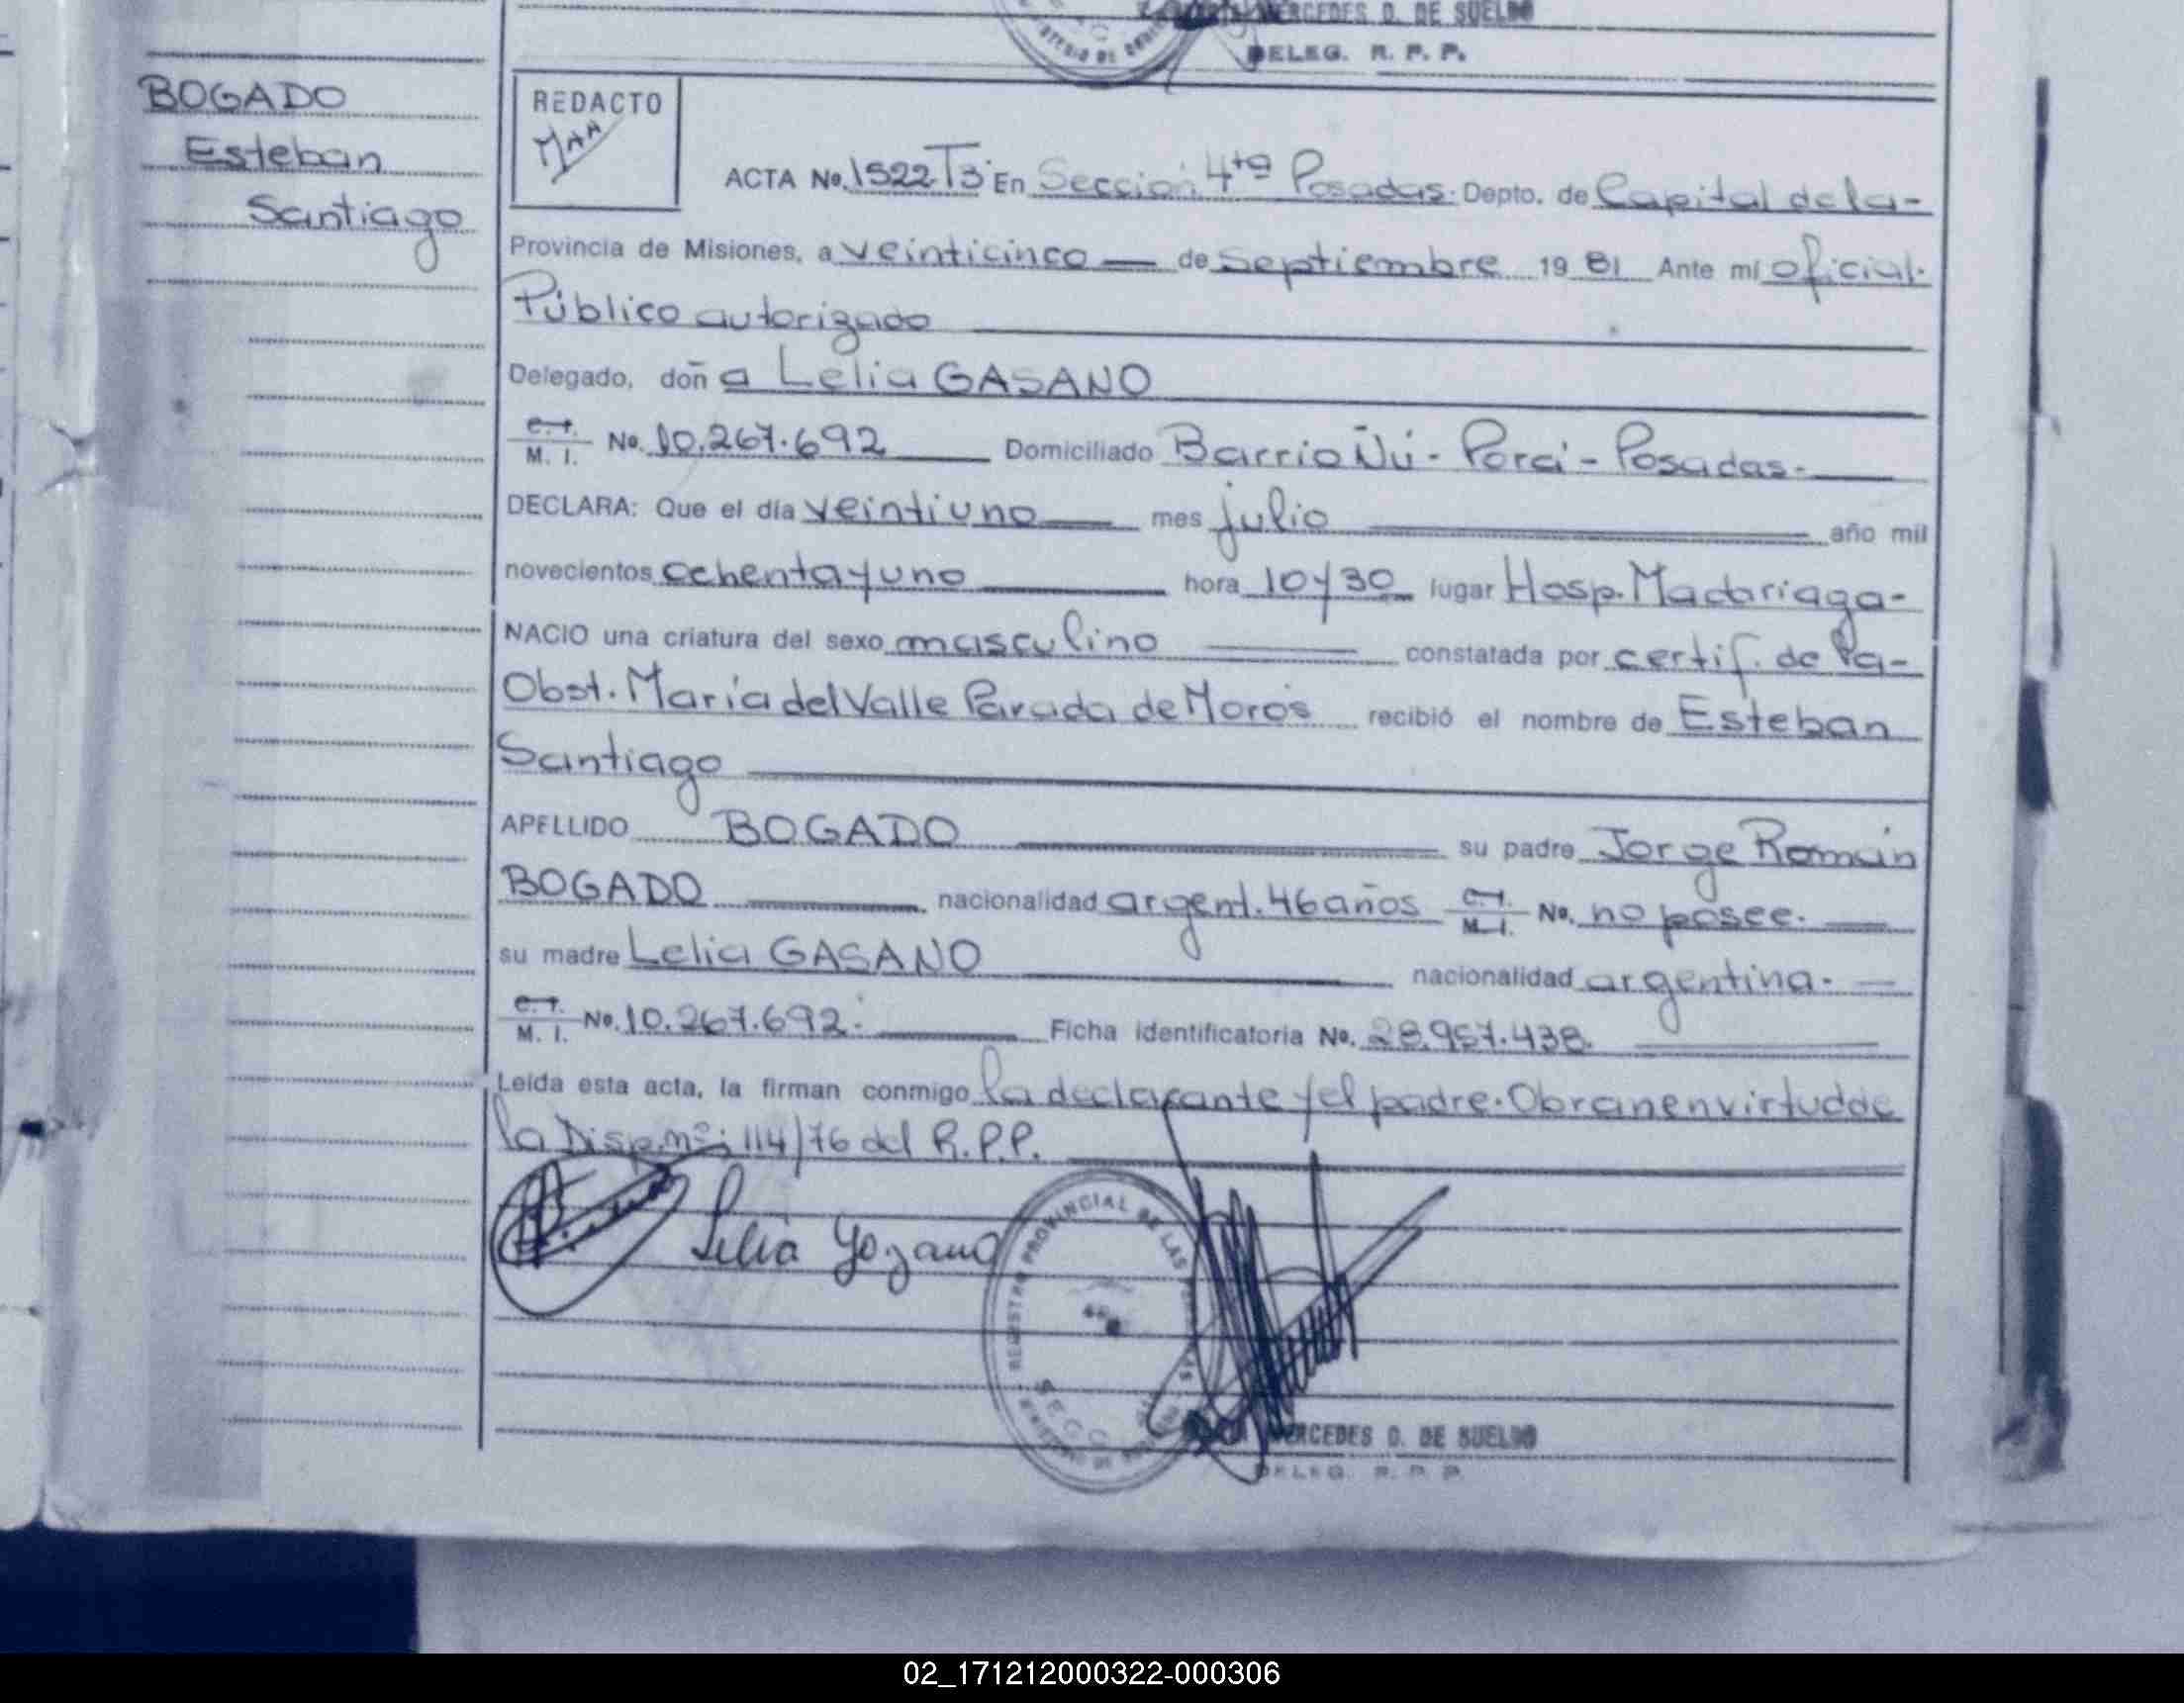 MERCEDES D. DE SUELDO
DELEG. R. P. P.
BOGADO
Esteban
Santiago
REDACTO
ACTA No. 1522 T3 En Sección 4ta Posadas. Depto. de Capital de la-
Provincia de Misiones, a veinticinco — de Septiembre 19 81 Ante mí oficial.
Público autorizado
Delegado, doñ a Lelia GASANO
C.I.
M. I. No. 10.267.692 Domiciliado Barrio Ñú - Porá - Posadas.-
DECLARA: Que el día veintiuno mes julio año mil
novecientos ochenta y uno hora 10 y 30 lugar Hosp. Madariaga-
NACIO una criatura del sexo masculino constatada por certif. de la-
Obst. María del Valle Parada de Moros recibió el nombre de Esteban
Santiago
APELLIDO BOGADO su padre Jorge Román
BOGADO nacionalidad argent. 46 años C.I. M.I. No. no posee.
su madre Lelia GASANO nacionalidad argentina.
C.I.
M. I. No. 10.267.692. Ficha identificatoria No. 28.957.438.
Leída esta acta, la firman conmigo la declarante y el padre. Obran en virtud de
la Disp. nº: 114/76 del R.P.P.
Lelia Gozano
REGISTRO PROVINCIAL DE LAS
MERCEDES D. DE SUELDO
DELEG. R. P. P.
02_171212000322-000306